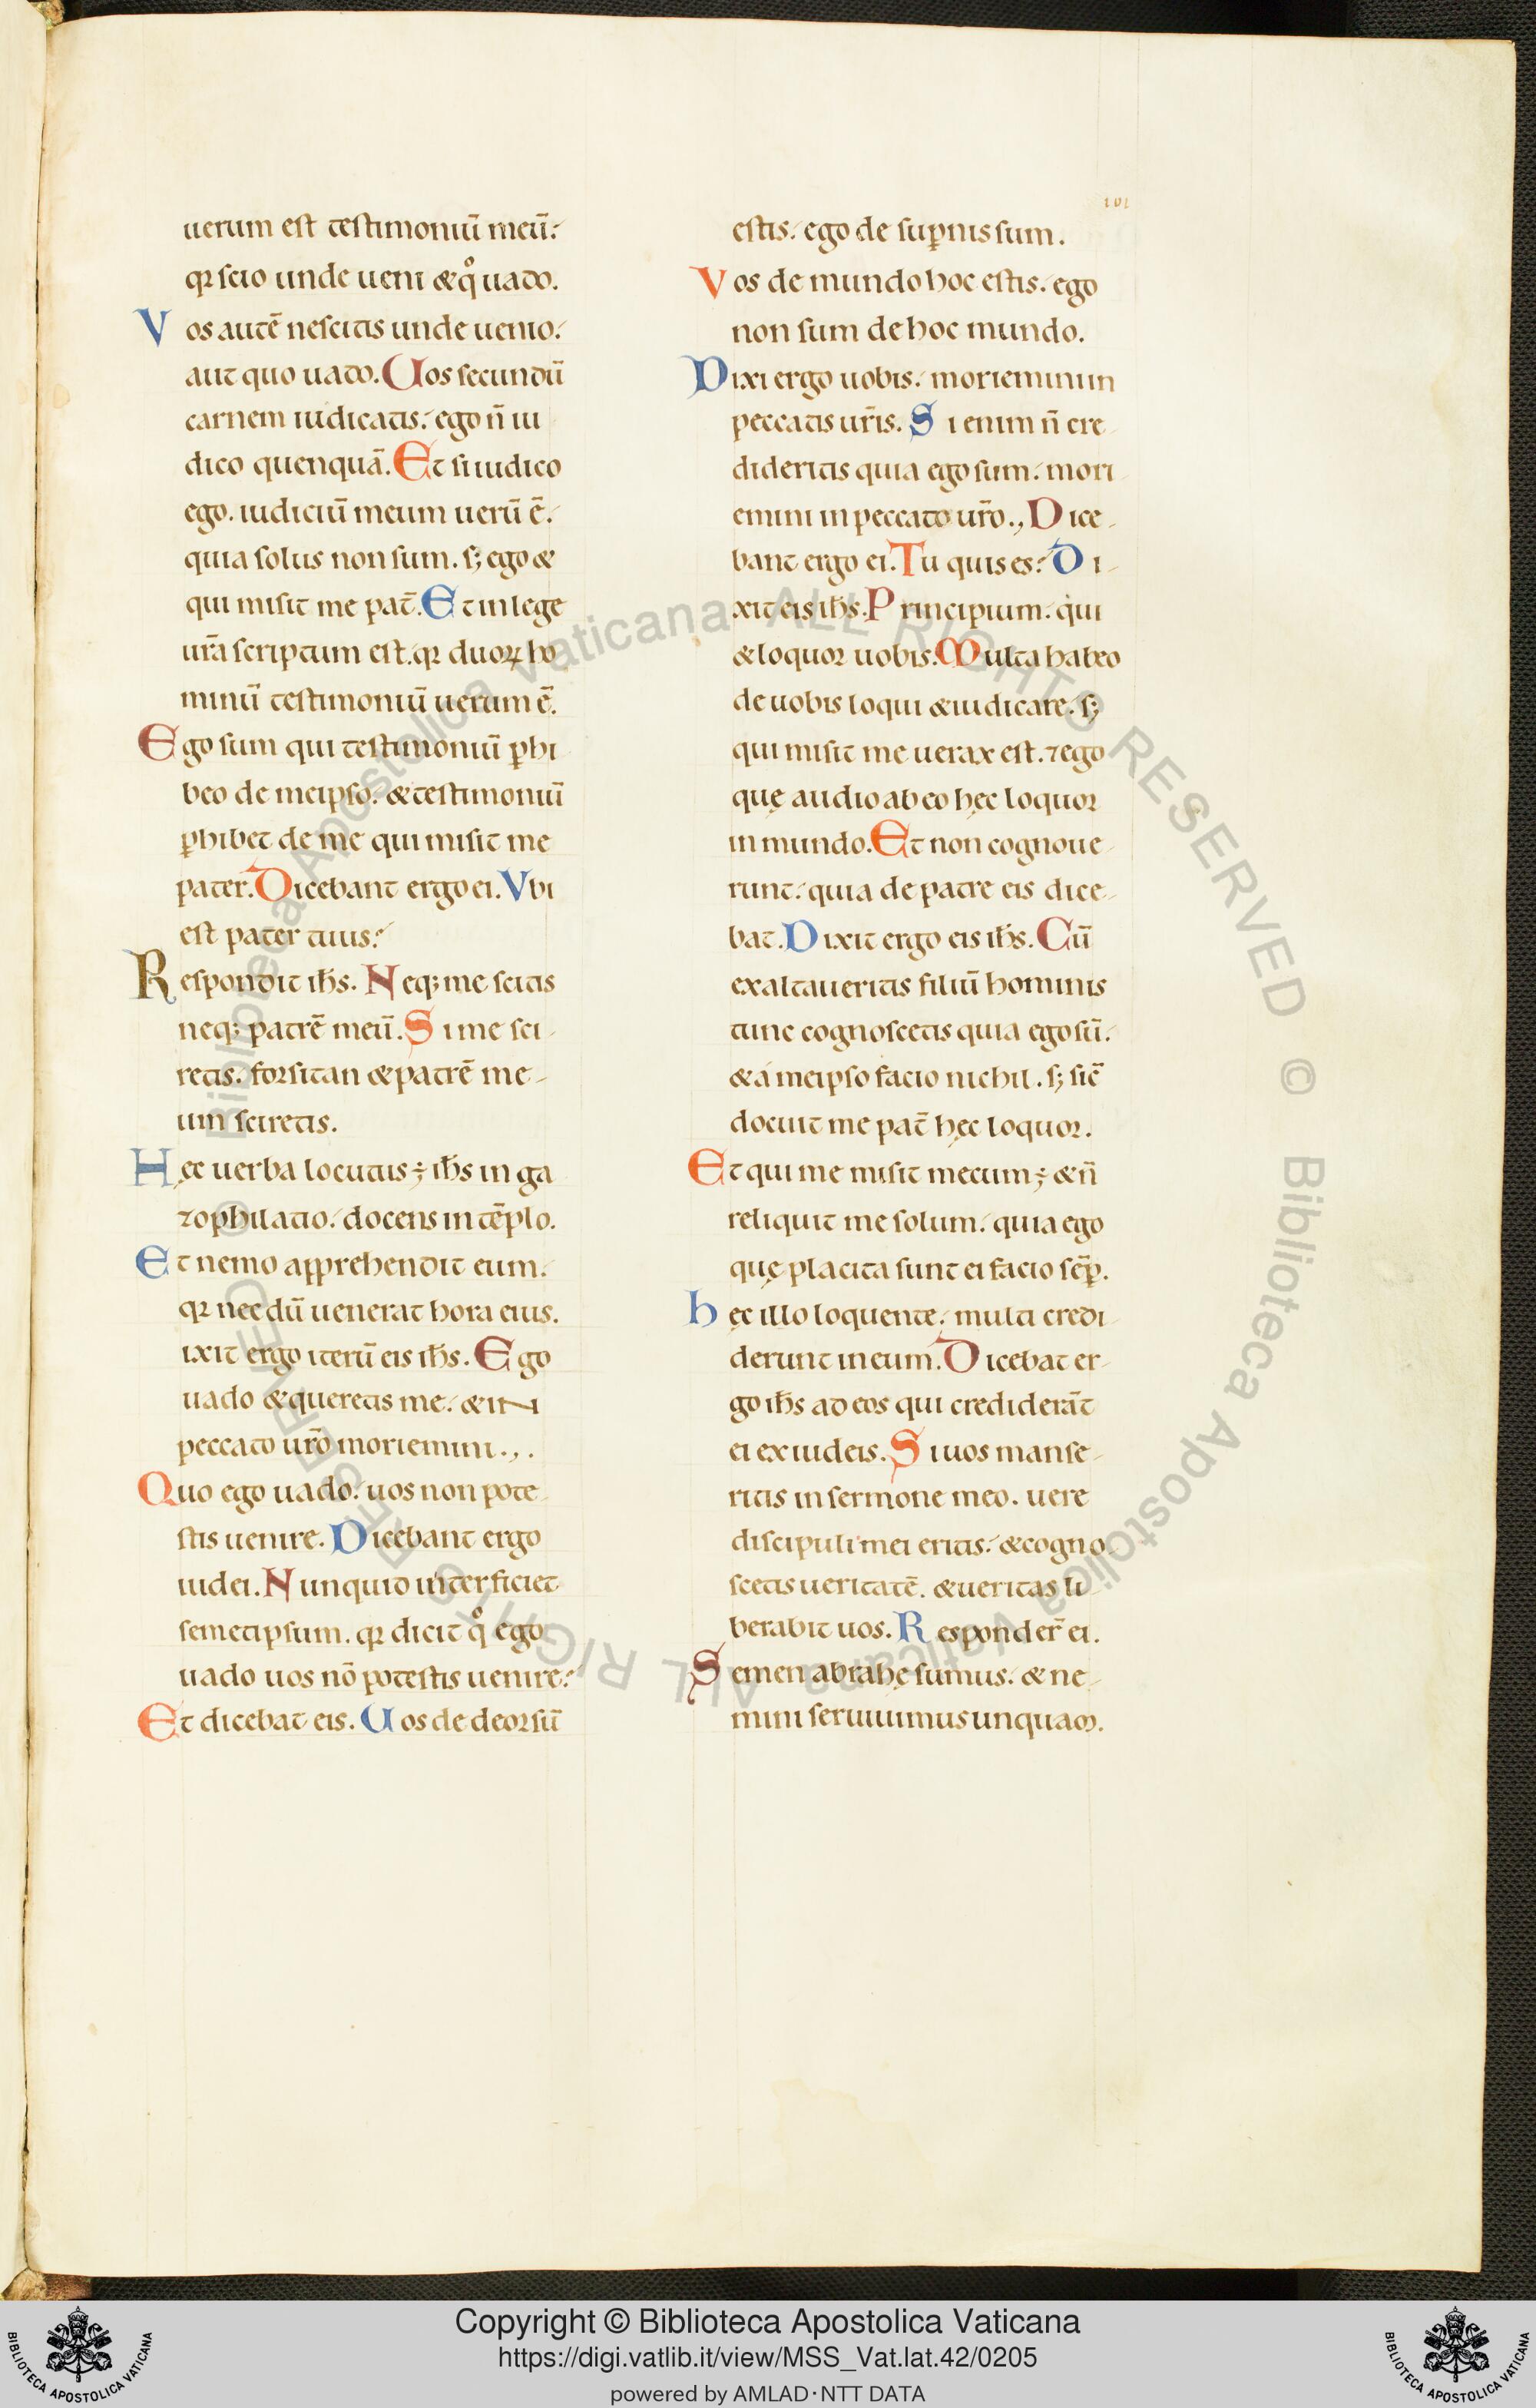 101
uerum est testimoniū meū:
qr scio unde ueni & qͦ uado.
Vos autē nescitis unde uenio:
aut quo uado. Uos secundū
carnem iudicatis: ego n̄ iu
dico quenquā. Et si iudico
ego. iudiciū meum uerū ē:
quia solus non sum. s; ego &
qui misit me pat̄. Et in lege
ur̄a scriptum est. qr duoꝝ ho
minū testimoniū uerum ē.
Ego sum qui testimoniū ꝑhi
beo de meipso: & testimoniū
ꝑhibet de me qui misit me
pater. Dicebant ergo ei. Vbi
est pater tuus:
Respondit ih̄s. Neq; me scitis
neq; patrē meū. Si me sci-
retis. forsitan & patrē me-
um sciretis.
Hęc uerba locutus ÷ ih̄s in ga
zophilatio: docens in tēplo.
Et nemo apprehendit eum:
qr nec dū uenerat hora eius.
ixit ergo iterū eis ih̄s. Ego
uado & queretis me: & in
peccato ur̄o moriemini.,.
Quo ego uado: uos non pote
stis uenire. Dicebant ergo
iudei. Nunquid interficiet
semetipsum. qr dicit qͦ ego
uado uos nō potestis uenire:
Et dicebat eis. Uos de deorsū
estis: ego de suꝑnis sum.
Vos de mundo hoc estis: ego
non sum de hoc mundo.
Dixi ergo uobis: moriemini in
peccatis ur̄is. Si enim n̄ cre
dideritis quia ego sum: mori
emini in peccato ur̄o., Dice-
bant ergo ei. Tu quis es: Di-
xit eis ih̄s. Principium: qui
& loquor uobis. Multa habeo
de uobis loqui & iudicare. s;
qui misit me uerax est. ⁊ ego
quę audio ab eo hęc loquor
in mundo. Et non cognoue-
runt: quia de patre eis dice-
bat. Dixit ergo eis ih̄s. Cū
exaltaueritis filiū hominis
tunc cognoscetis quia ego sū:
& a meipso facio nichil. s; sic̄
docuit me pat̄ hęc loquor.
Et qui me misit mecum ÷ & n̄
reliquit me solum: quia ego
quę placita sunt ei facio sēꝑ.
hęc illo loquente: multi credi
derunt in eum. Dicebat er-
go ih̄s ad eos qui crediderāt
ei ex iudeis. Si uos manse-
ritis in sermone meo. uere
discipuli mei eritis: & cogno-
scetis ueritatē. & ueritas li-
berabit uos. Responder̄ ei.
Semen abrahę sumus: & ne-
mini seruiuimus unquam.
Copyright © Biblioteca Apostolica Vaticana
https://digi.vatlib.it/view/MSS_Vat.lat.42/0205
powered by AMLAD·NTT DATA
BIBLIOTECA APOSTOLICA VATICANA
BIBLIOTECA APOSTOLICA VATICANA
© Biblioteca Apostolica Vaticana ALL RIGHTS RESERVED © Biblioteca Apostolica Vaticana ALL RIGHTS RESERVED